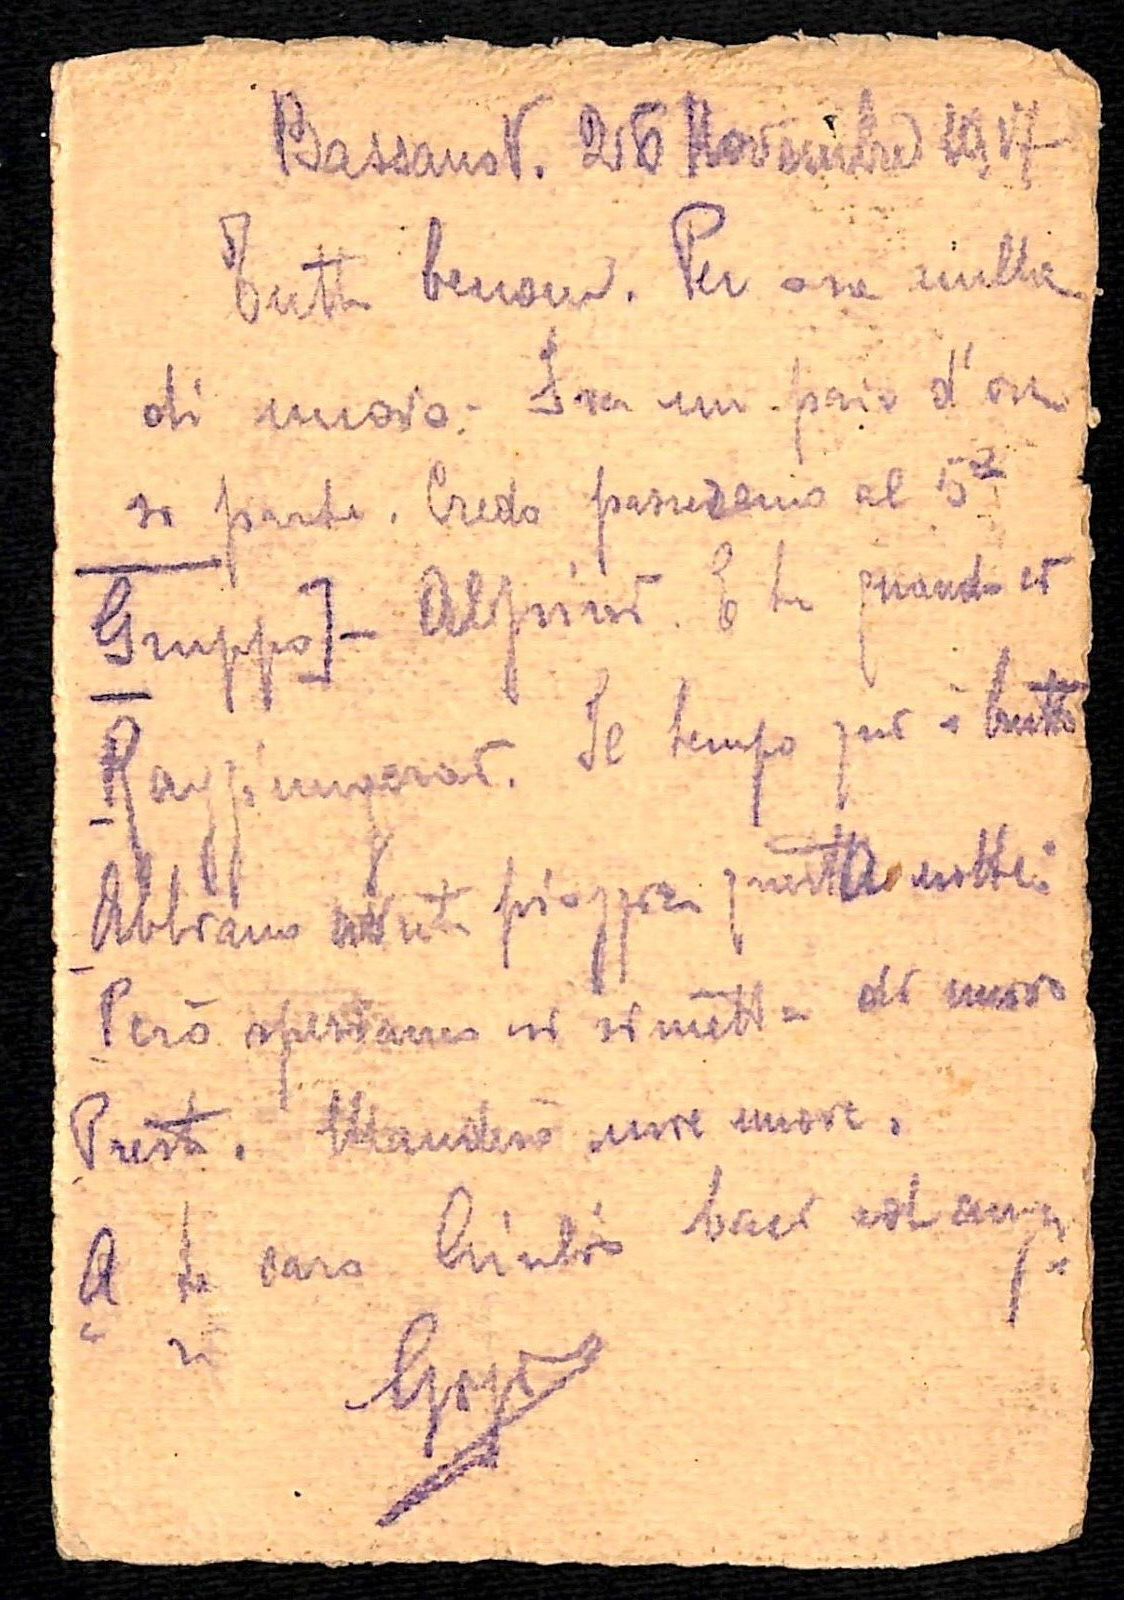 Bassano V. 26 Novembre 1917
Tutti benone. Per ora nulla
di nuovo. Fra un paio d'ore
si parte. Credo passeremo al 5º
Gruppo]- Alpini. E te quando ci
Raggiungerai. Il tempo qui è brutto
Abbiamo avuto pioggia questa notte.
Però speriamo si rimetta di nuovo
Presto. Manderò mie nuove.
A te caro baci ed aug.